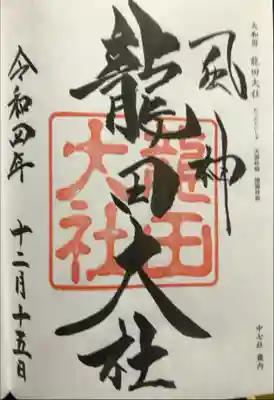 大和国 龍田大社
風神
龍田大社
龍田大社
令和四年 十二月十五日
中七社 畿内